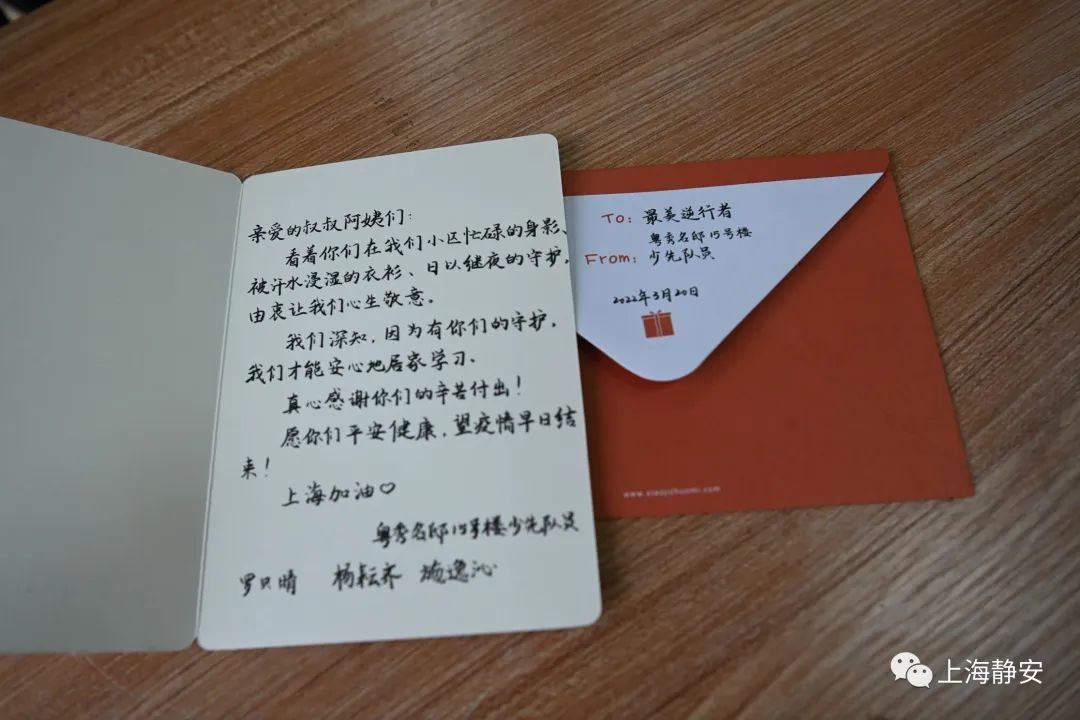 亲爱的叔叔阿姨们：
看着你们在我们小区忙碌的身影、
被汗水浸湿的衣衫、日以继夜的守护，
由衷让我们心生敬意。
我们深知，因为有你们的守护，
我们才能安心地居家学习。
真心感谢你们的辛苦付出！
愿你们平安健康，望疫情早日结
束！
上海加油♡
粤秀名邸15号楼少先队员
罗只晴 杨耘齐 施逸沁
To: 最美逆行者
粤秀名邸15号楼
From: 少先队员
2022年3月20日
上海静安